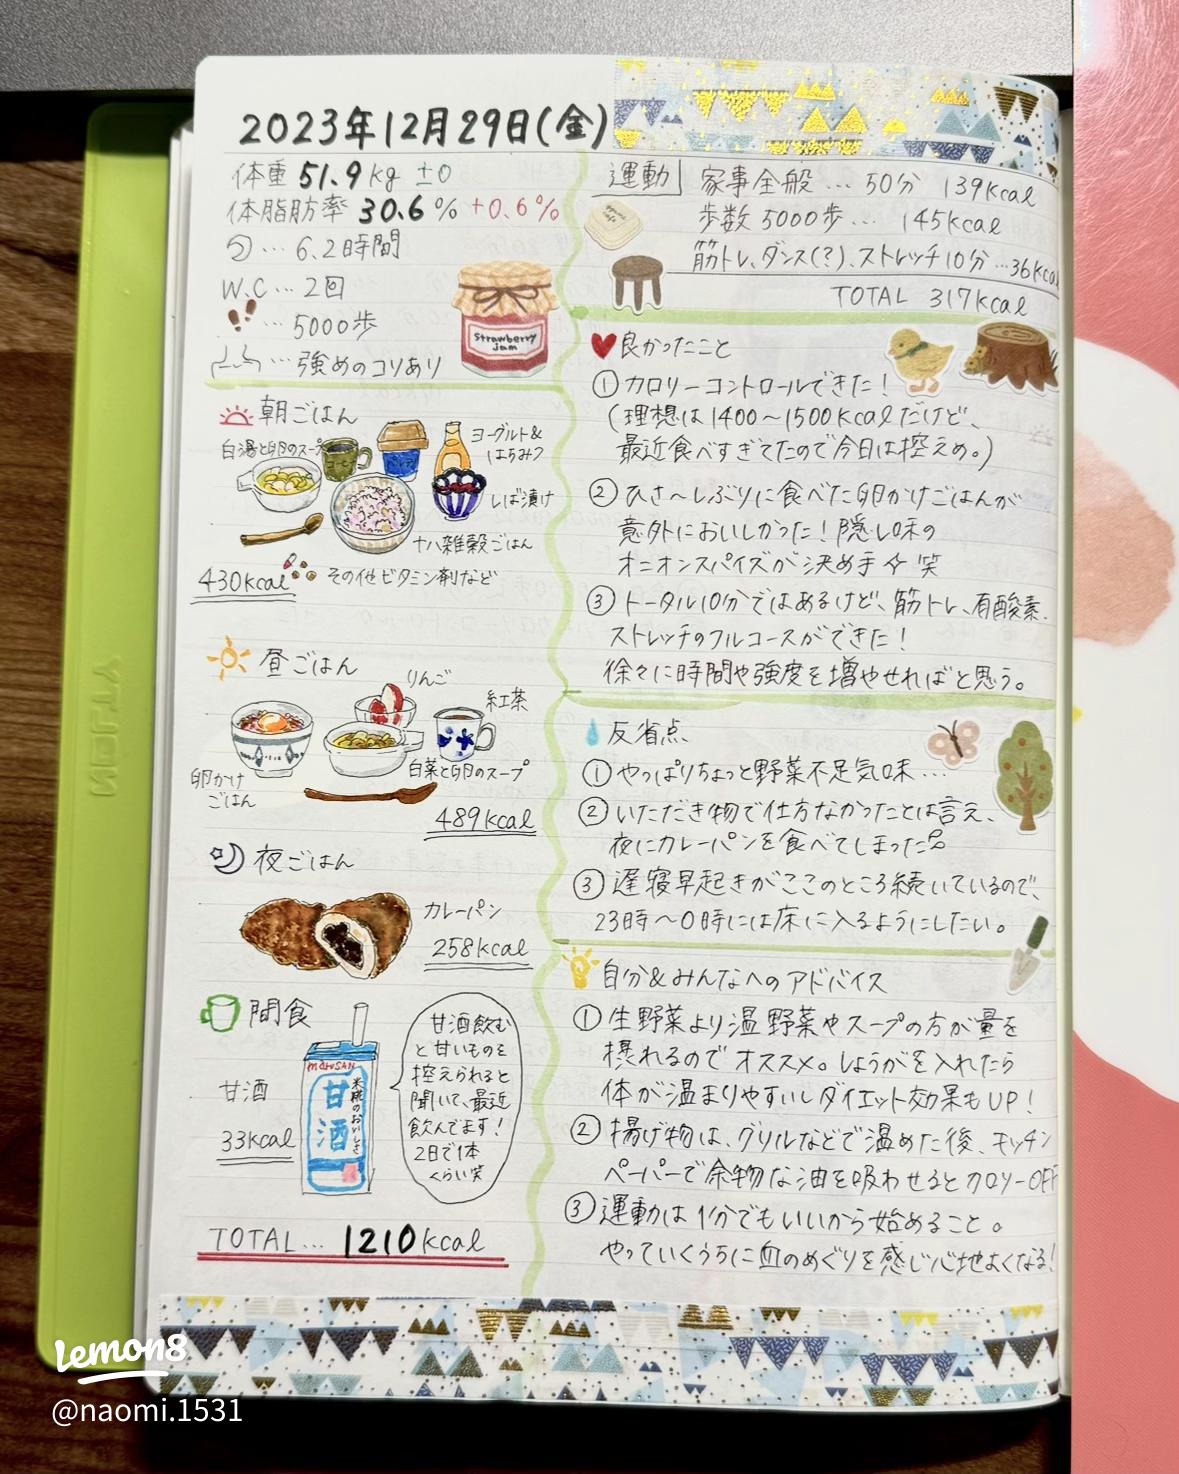 2023年12月29日(金)
体重 51.9kg ±0
体脂肪率 30.6% +0.6%
… 6.2時間
W.C … 2回
… 5000歩
… 強めのコリあり
Strawberry
Jam
朝ごはん
白湯と卵のスープ
コーヒー
ヨーグルト&
はちみつ
しば漬け
十八雑穀ごはん
430kcal
その他ビタミン剤など
昼ごはん
りんご
紅茶
卵かけ
ごはん
白菜と卵のスープ
489kcal
夜ごはん
カレーパン
258kcal
間食
甘酒
33kcal
marusan
甘酒
米糀のおいしさ
甘酒飲む
と甘いものを
控えられると
聞いて、最近
飲んでます!
2日で1本
くらい笑
TOTAL … 1210kcal
運動 家事全般 … 50分 139kcal
歩数 5000歩 … 145kcal
筋トレ、ダンス(?)、ストレッチ10分 …36kcal
TOTAL 317kcal
良かったこと
① カロリーコントロールできた!
(理想は1400〜1500kcalだけど、
最近食べすぎてたので今日は控えめ。)
② ひさ〜しぶりに食べた卵かけごはんが
意外においしかった!隠し味の
オニオンスパイスが決め手 笑
③ トータル10分ではあるけど、筋トレ、有酸素、
ストレッチのフルコースができた!
徐々に時間や強度を増やせればと思う。
反省点
① やっぱりちょっと野菜不足気味…
② いただき物で仕方なかったことは言え、
夜にカレーパンを食べてしまった
③ 遅寝早起きがここのところ続いているので、
23時〜0時には床に入るようにしたい。
自分&みんなへのアドバイス
① 生野菜より温野菜やスープの方が量を
摂れるのでオススメ。しょうがを入れたら
体が温まりやすいしダイエット効果もUP!
② 揚げ物は、グリルなどで温めた後、キッチン
ペーパーで余物な油を吸わせるとカロリーOFF
③ 運動は1分でもいいから始めること。
やっていくうちに血のめぐりを感じ心地よくなる!
YTJON
Lemon8
@naomi.1531